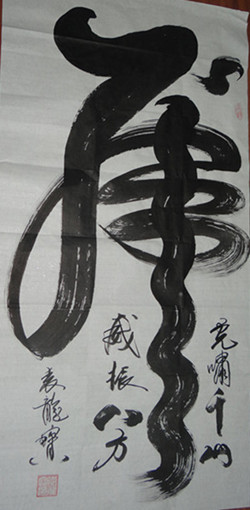 虎
虎啸千山
威振八方
袁龍宝